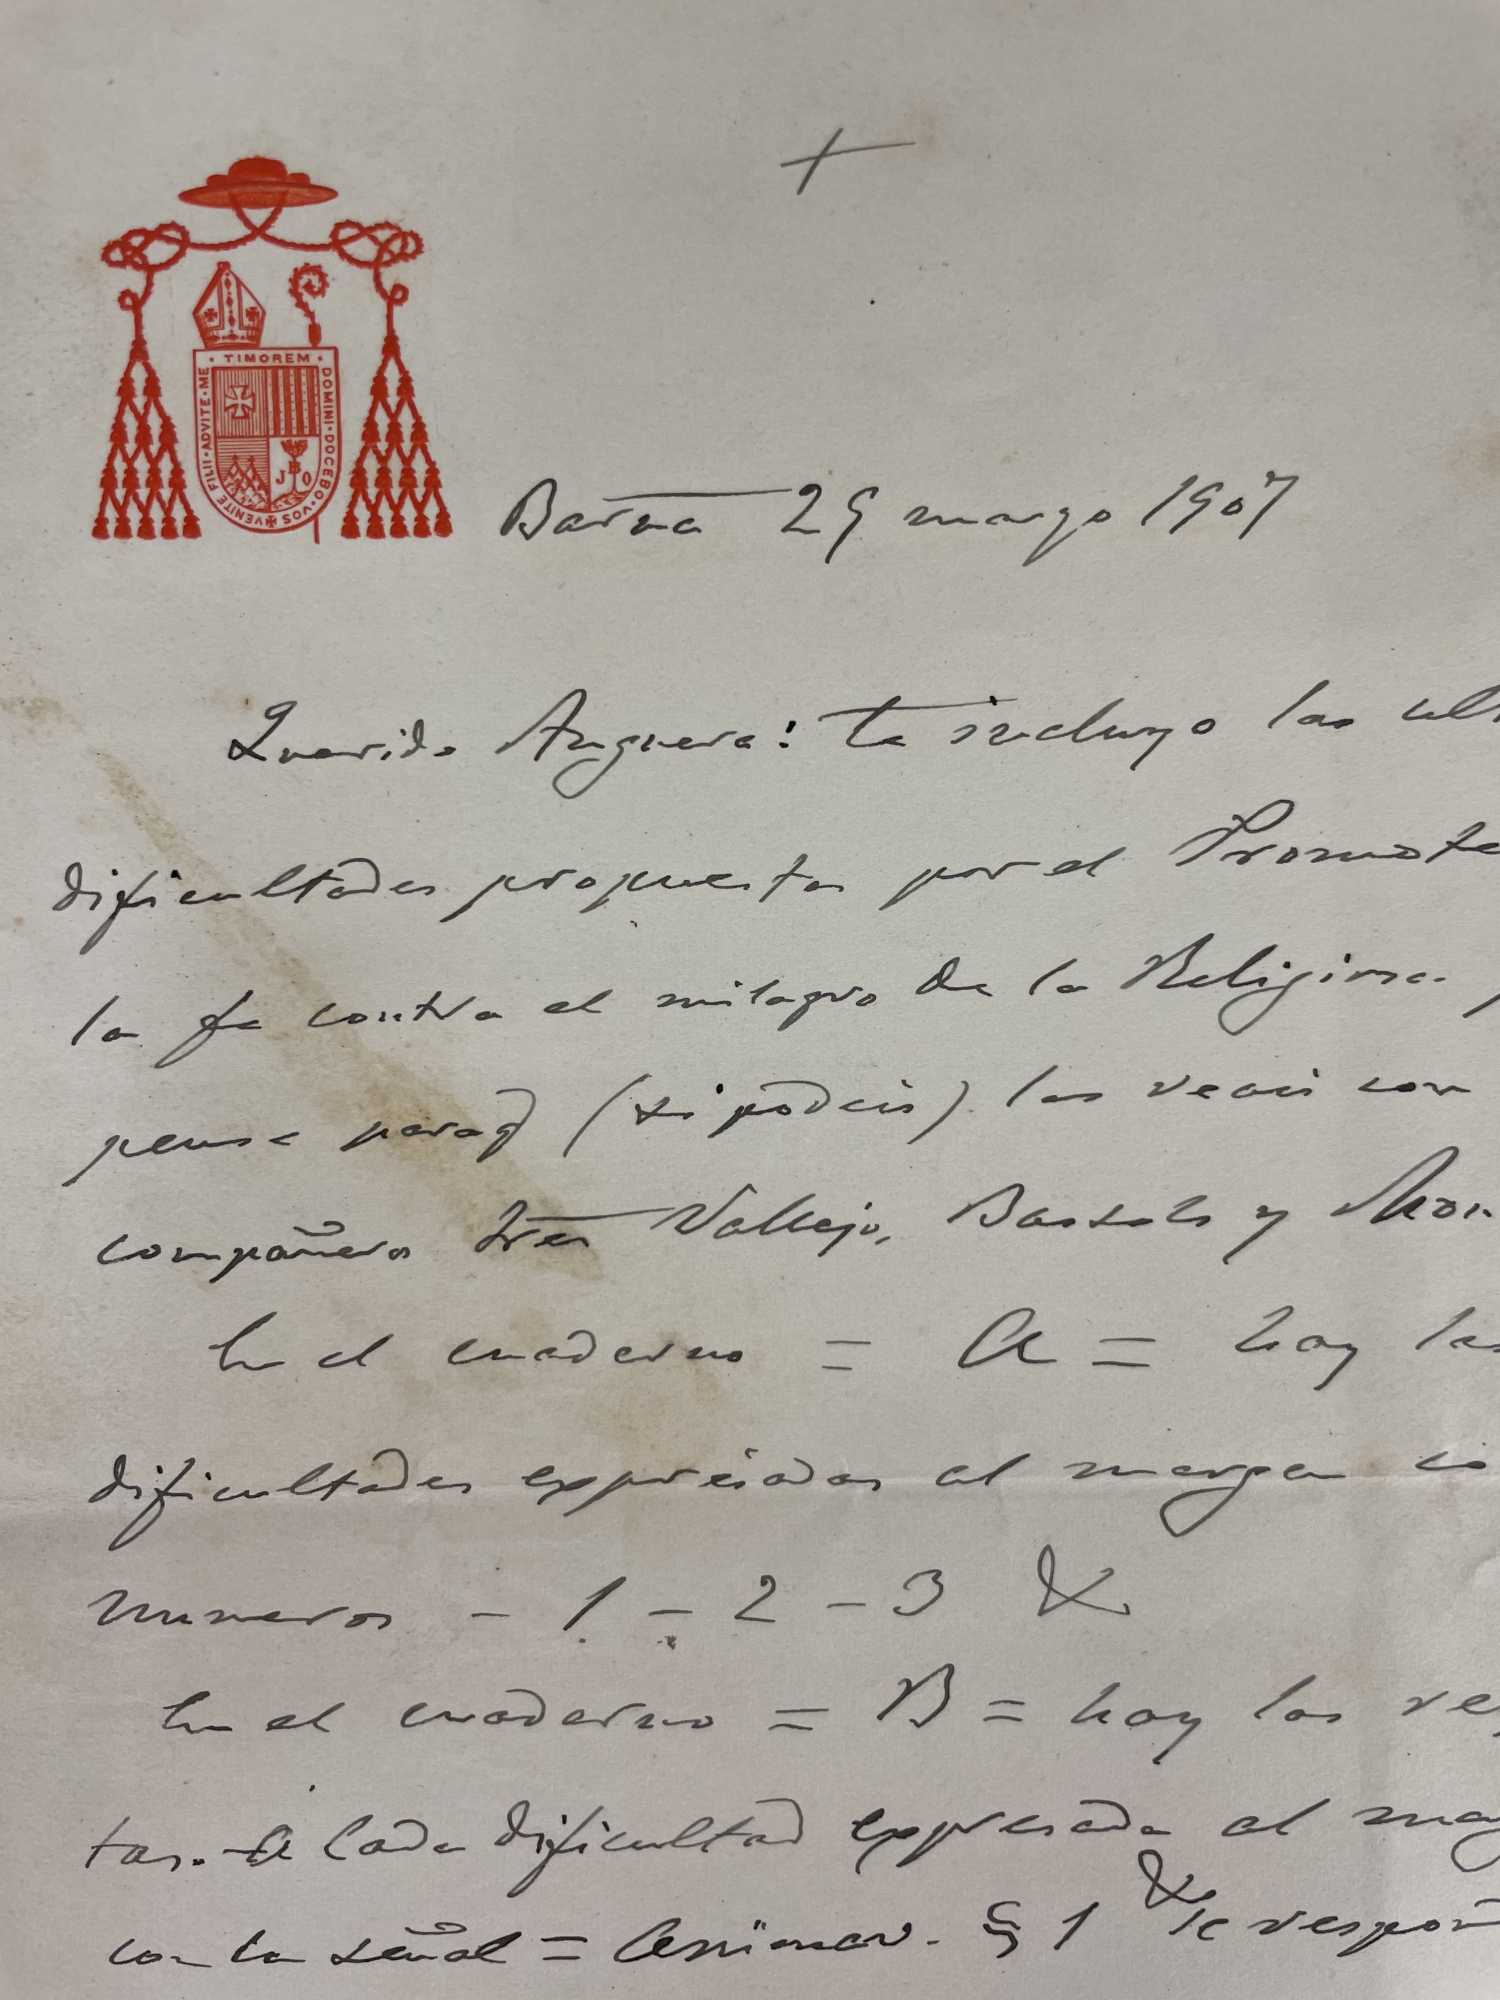 +
TIMOREM · DOMINI · DOCEBO · VOS ✠ VENITE FILII · ADVITE · ME
J B O
Barna 29 marzo 1907
Querido Anguera: te incluyo las ult
dificultades propuestas por el Promote
la fe contra el milagro de la Religiosa.
pense paraq (si podeis) las veais con
compañeros tres Vallejo, Bassols y Mon
En el cuaderno = A = hay las
dificultades expresadas al margen co
numeros - 1 - 2 - 3 &.
En el cuaderno = B = hay las res
tas. A cada dificultad expresada al mar
con la señal = Animav. § 1 & se respon